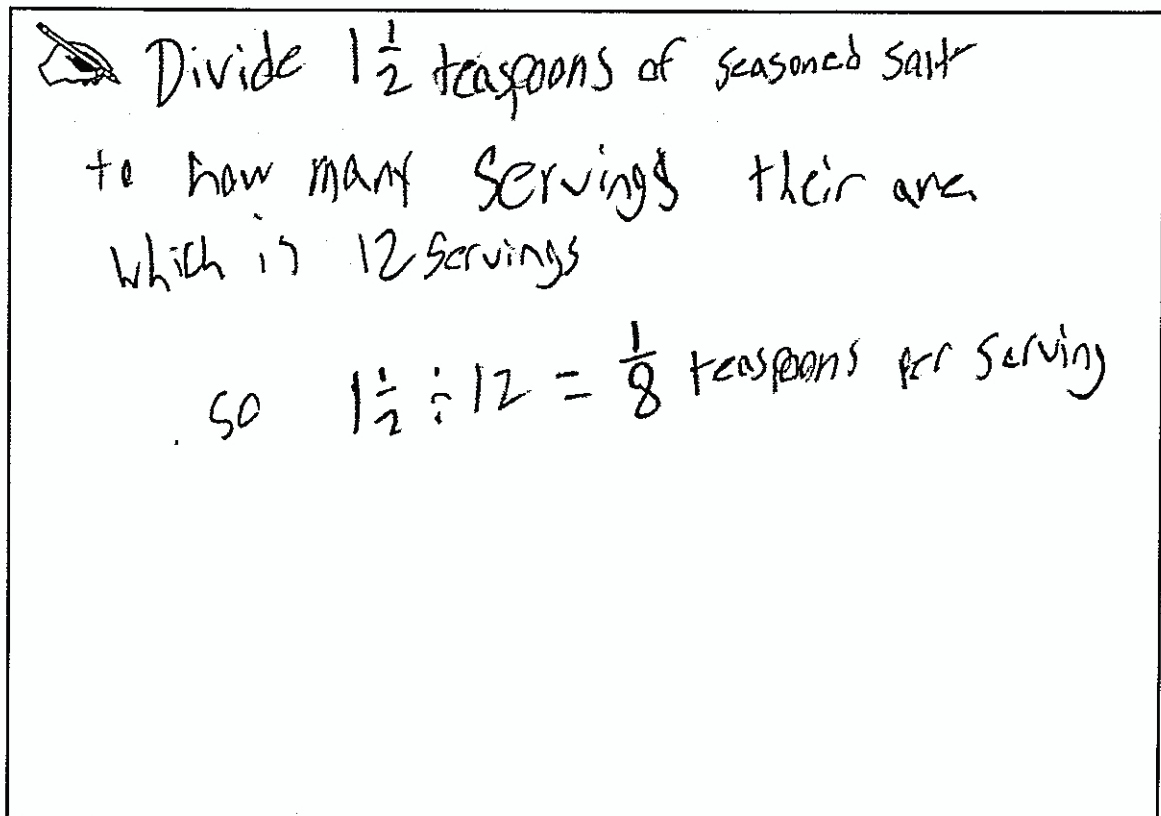 Divide 1 1/2 teaspoons of seasoned salt
to how many servings their are
which is 12 servings
so 1 1/2 ÷ 12 = 1/8 teaspoons per serving